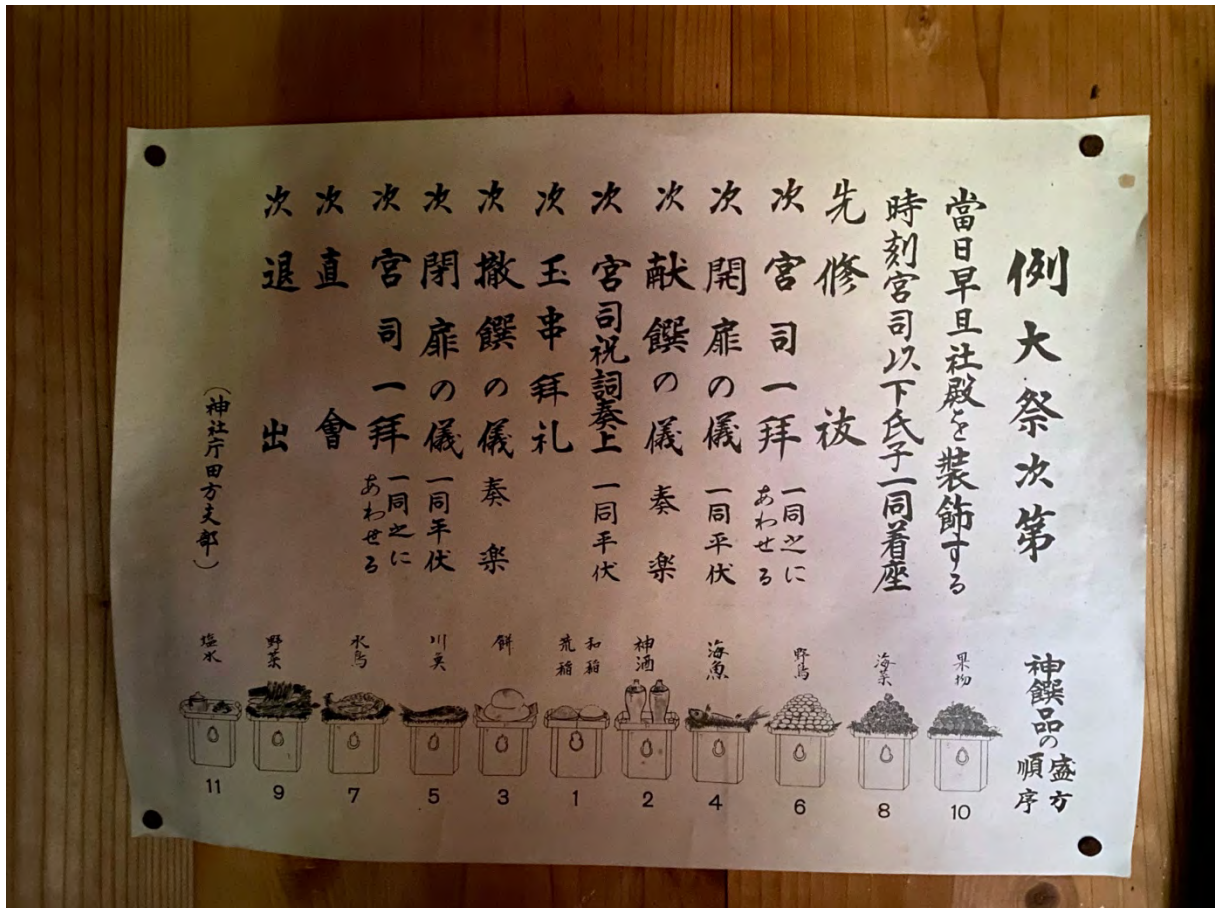 例大祭次第
當日早旦社殿を装飾する
時刻宮司以下氏子一同着座
先 修祓
次 宮司一拝 一同之にあわせる
次 開扉の儀 一同平伏
次 献饌の儀 奏楽
次 宮司祝詞奏上 一同平伏
次 玉串拝礼
次 撤饌の儀 奏楽
次 閉扉の儀 一同平伏
次 宮司一拝 一同之にあわせる
次 直會
次 退出
(神社庁田方支部)
神饌品の盛方順序
果物 10
海菜 8
野鳥 6
海魚 4
神酒 2
和稲 荒稲 1
餅 3
川魚 5
水鳥 7
野菜 9
塩水 11